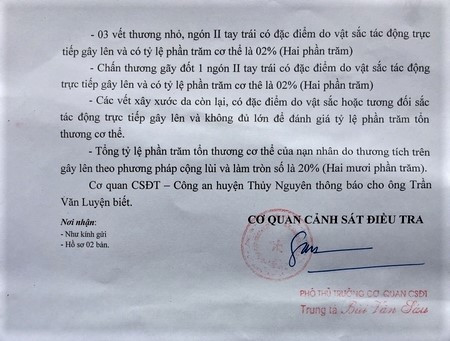 - 03 vết thương nhỏ, ngón II tay trái có đặc điểm do vật sắc tác động trực
tiếp gây lên và có tỷ lệ phần trăm cơ thể là 02% (Hai phần trăm)
- Chấn thương gãy đốt 1 ngón II tay trái có đặc điểm do vật sắc tác động
trực tiếp gây lên và có tỷ lệ phần trăm cơ thê là 02% (Hai phần trăm)
- Các vết xây xước da còn lại, có đặc điểm do vật sắc hoặc tương đối sắc
tác động trực tiếp gây lên và không đủ lớn để đánh giá tỷ lệ phần trăm tổn
thương cơ thể.
- Tổng tỷ lệ phần trăm tổn thương cơ thể của nạn nhân do thương tích trên
gây lên theo phương pháp cộng lùi và làm tròn số là 20% (Hai mươi phần trăm).
Cơ quan CSĐT – Công an huyện Thủy Nguyên thông báo cho ông Trần
Văn Luyện biết.
Nơi nhận:
- Như kính gửi
- Hồ sơ 02 bản.
CƠ QUAN CẢNH SÁT ĐIỀU TRA
PHÓ THỦ TRƯỞNG CƠ QUAN CSĐT
Trung tá Bùi Văn Sáu